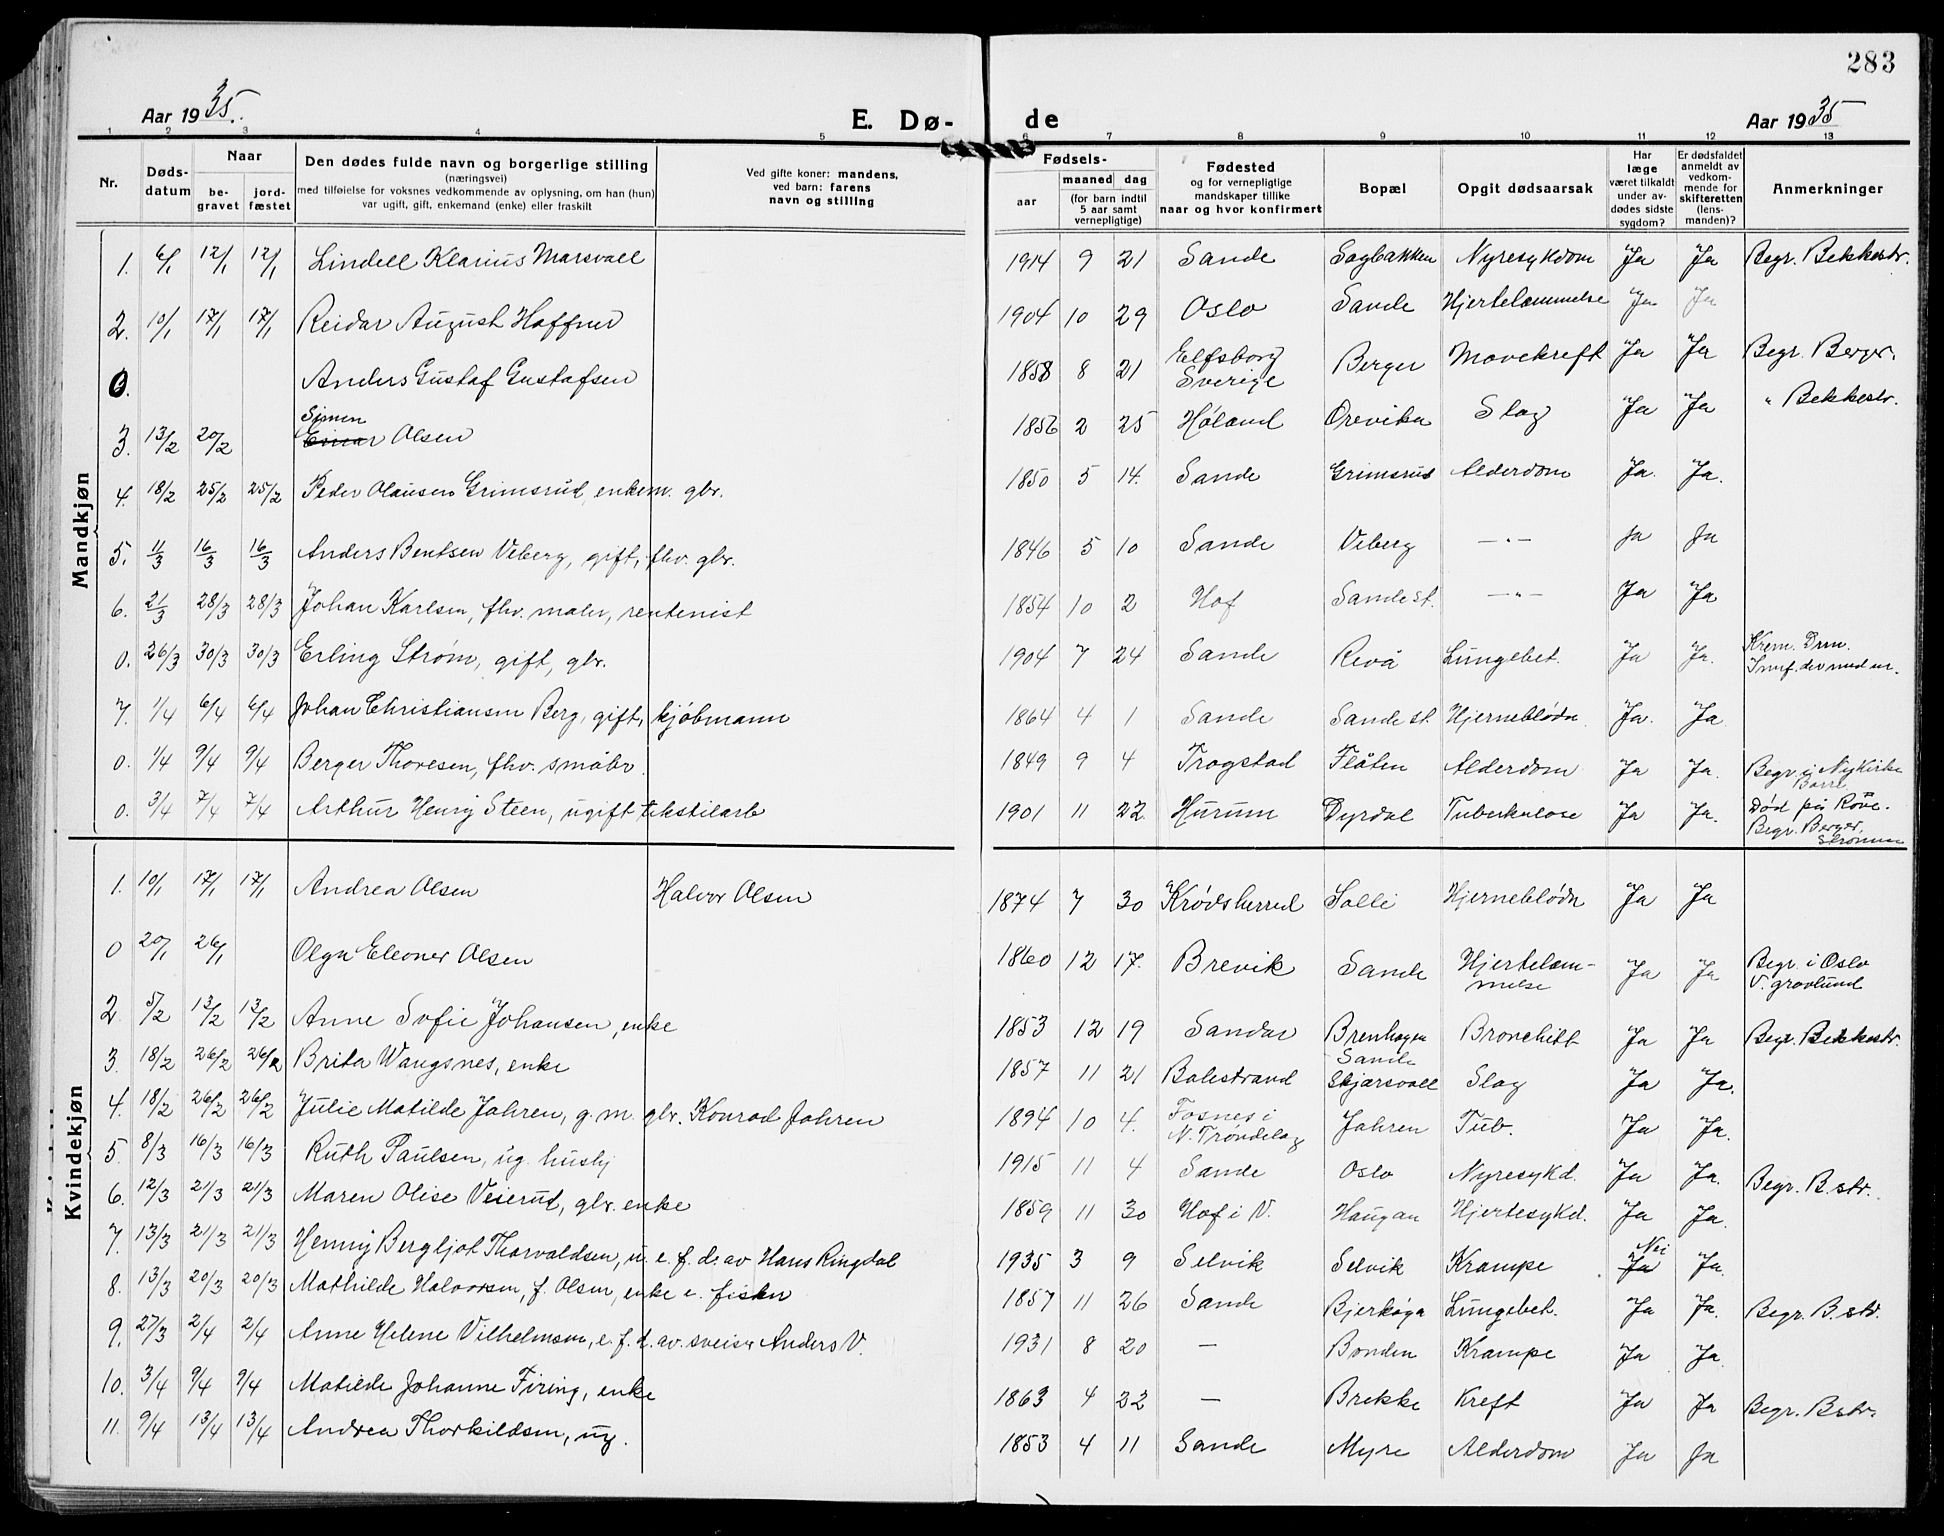 283
Aar 1935.
E. Dø-
de
Aar 1935
1 2 3 4 5 6 7 8 9 10 11 12 13
Nr.
Døds-
datum
Naar
be-
gravet
jord-
fæstet
Den dødes fulde navn og borgerlige stilling
(næringsvei)
med tilføielse for voksnes vedkommende av oplysning, om han (hun)
var ugift, gift, enkemand (enke) eller fraskilt
Ved gifte koner: mandens,
ved barn: farens
navn og stilling
Fødsels-
aar
maaned dag
(for barn indtil
5 aar samt
vernepligtige)
Fødested
og for vernepligtige
mandskaper tillike
naar og hvor konfirmert
Bopæl
Opgit dødsaarsak
Har
læge
været tilkaldt
under av-
dødes sidste
sygdom?
Er dødsfaldet
anmeldt av
vedkom-
mende for
skifteretten
(lens-
manden)?
Anmerkninger
Mandkjøn
1. 6/1 12/1 12/1 Lindell Klarius Marsvoll 1914 9 21 Sande Sagbakken Nyresykdom Ja Ja Begr. Bekkestr.
2. 10/1 17/1 17/1 Reidar August Haffner 1904 10 29 Oslo Sande Hjertelammelse Ja Ja
0. Anders Gustaf Gustafsen 1858 8 21 Elfsborg Sverige Berger Mavekreft Ja Ja Begr. Berger.
3. 13/2 20/2 Simen Olsen 1856 2 25 Høland Orevika Slag Ja Ja " Bekkestr.
4. 18/2 25/2 25/2 Peder Olausen Grimsrud, enkem. gbr. 1850 5 14. Sande Grimsrud Alderdom Ja. Ja.
5. 11/3 16/3 16/3 Anders Bentsen Viberg, gift, fhv. gbr. 1846 5 10 Sande Viberg —"— Ja Ja
6. 21/3 28/3 28/3 Johan Karlsen, fhv. maler, rentenist 1854 10 2 Hof Sande st. —"— Ja Ja
0. 26/3 30/3 30/3 Erling Strøm, gift, gbr. 1904 7 24 Sande Revå Lungebet. Ja Ja. Krem. Drm.
7. 1/4 6/4 6/4 Johan Christiansen Berg, gift, kjøbmann 1864 4 1 Sande Sande st. Hjerneblødn. Ja. Ja
0. 1/4 9/4 9/4 Berger Thoresen, fhv. småbr. 1849 9 4 Trøgstad Flåten Alderdom Ja Ja. Begr. i Nykirke Borre
0. 3/4 7/4 7/4 Arthur Henry Steen, ugift tekstilarb 1901 11 22 Hurum Dyrdal Tuberkulose Ja Ja. Død på Røue.
Begr. Berger, Strømm
Kvindekjøn
1. 10/1 17/1 17/1 Andrea Olsen Halvor Olsen 1874 7 30 Krødsherred Solli Hjerneblødn Ja Ja
0 20/1 26/1 Olga Eleoner Olsen 1860 12 17. Brevik Sande Hjertelam-
melse Ja Ja Begr. i Oslo
V. gravlund
2. 5/2 13/2 13/2 Anne Sofie Johansen, enke 1853 12 19 Sandar Brenhagen Sande Bronchitt Ja Ja Begr. Bekkestr.
3. 18/2 26/2 26/2 Brita Wangsnes, enke 1857 11 21 Balestrand Skjærsvoll Slag Ja Ja.
4. 18/2 26/2 26/2 Julie Matilde Jahren, g. m. gbr. Konrad Jahren 1894 10 4. Fosnes i
N. Trøndelag Jahren Tub. Ja Ja.
5. 8/3 16/3 16/3 Ruth Paulsen, ug. hushj 1915 11 4 Sande Oslo Nyresykd. Ja Ja. Begr. B. str.
6. 12/3 21/3 21/3 Maren Olise Veierud, gbr. enke 1859 11 30 Hof i V. Haugan Hjertesykd. Ja Ja.
7. 13/3 21/3 21/3 Henny Bergljot Thorvaldsen, u. e. f. d. av Hans Ringdal 1935 3 9 Selvik Selvik Krampe Nei Ja Ja.
8. 13/3 20/3 20/3 Mathilde Halvorsen, f. Olsen, enke e. fisker 1857 11 26 Sande Bjerkøya Lungebet. Ja Ja. Begr. B. str.
9. 27/3 2/4 2/4 Anne Helene Vilhelmsen, e. f. d. av. sveiser Anders V. 1931 8 20 — Bonden Krampe Ja Ja.
10. 3/4 9/4 9/4 Matilde Johanne Firing, enke 1863 4 22 — Brekke Kreft Ja Ja Begr. B str.
11. 9/4 13/4 13/4 Andrea Thorkildsen, ug. 1853 4 11 Sande Myre Alderdom Ja Ja